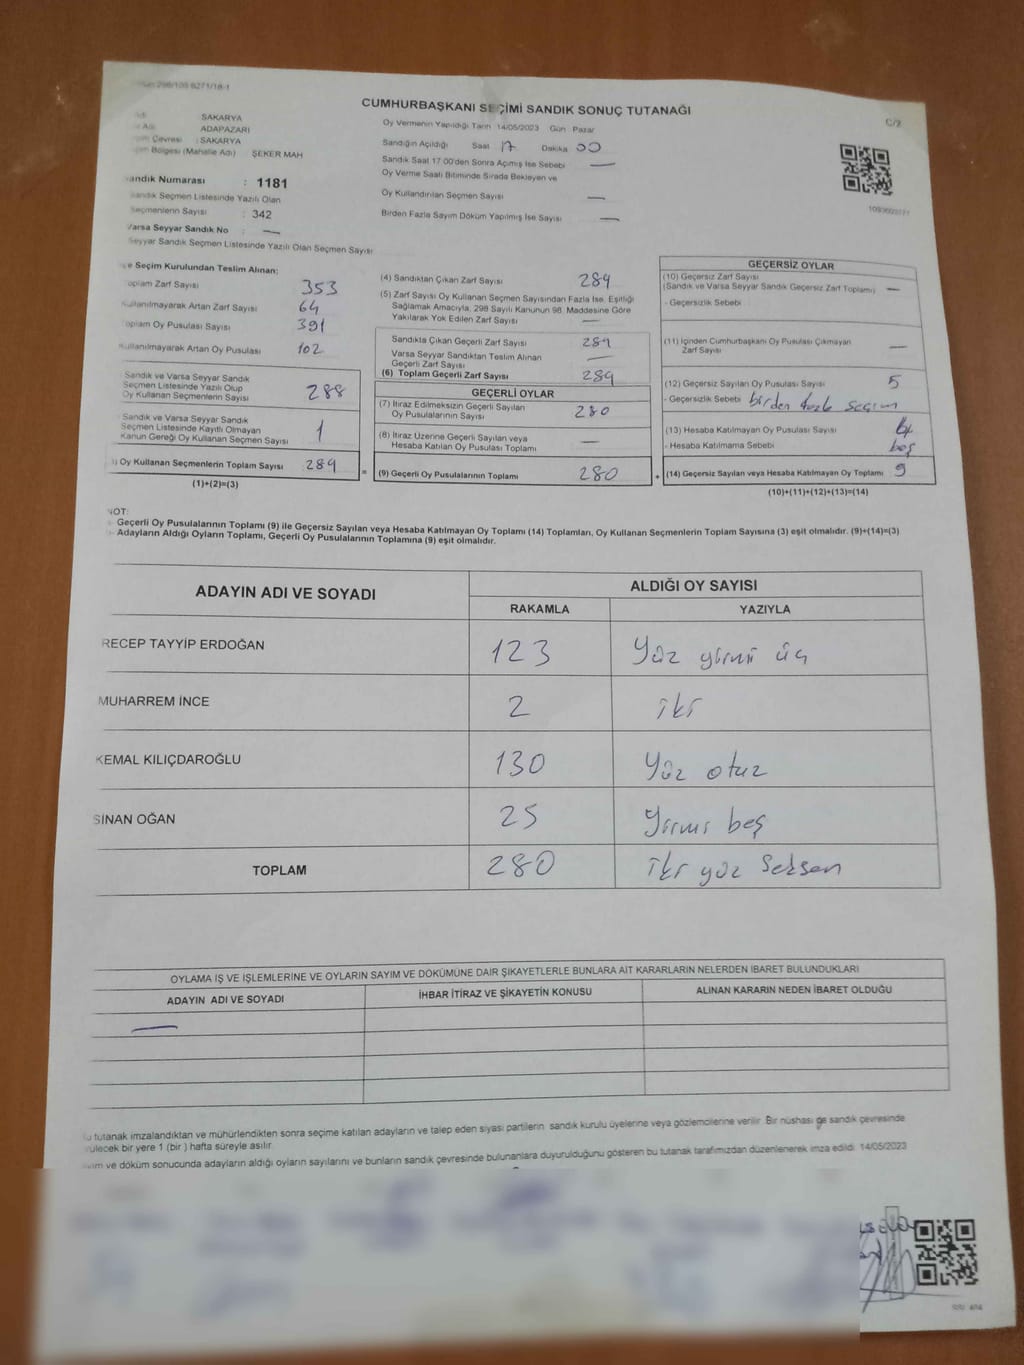 CUMHURBAŞKANI SEÇİMİ SANDIK SONUÇ TUTANAĞI
C/2
SAKARYA
ADAPAZARI
Çevresi : SAKARYA
Bölgesi (Mahalle Adı) ŞEKER MAH
andık Numarası : 1181
Sandık Seçmen Listesinde Yazılı Olan
Seçmenlerin Sayısı : 342
Varsa Seyyar Sandık No : —
Seyyar Sandık Seçmen Listesinde Yazılı Olan Seçmen Sayısı
Oy Vermenin Yapıldığı Tarih 14/05/2023 Gün Pazar
Sandığın Açıldığı Saat 17 Dakika 00
Sandık Saat 17:00'den Sonra Açılmış İse Sebebi —
Oy Verme Saati Bitiminde Sırada Bekleyen ve
Oy Kullandırılan Seçmen Sayısı —
Birden Fazla Sayım Döküm Yapılmış İse Sayısı —
çe Seçim Kurulundan Teslim Alınan;
oplam Zarf Sayısı 353
Kullanılmayarak Artan Zarf Sayısı 64
Toplam Oy Pusulası Sayısı 391
Kullanılmayarak Artan Oy Pusulası 102
Sandık ve Varsa Seyyar Sandık
Seçmen Listesinde Yazılı Olup
Oy Kullanan Seçmenlerin Sayısı 288
Sandık ve Varsa Seyyar Sandık
Seçmen Listesinde Kayıtlı Olmayan
Kanun Gereği Oy Kullanan Seçmen Sayısı 1
) Oy Kullanan Seçmenlerin Toplam Sayısı 289 =
(1)+(2)=(3)
(4) Sandıktan Çıkan Zarf Sayısı 289
(5) Zarf Sayısı Oy Kullanan Seçmen Sayısından Fazla İse, Eşitliği
Sağlamak Amacıyla, 298 Sayılı Kanunun 98. Maddesine Göre
Yakılarak Yok Edilen Zarf Sayısı —
Sandıkta Çıkan Geçerli Zarf Sayısı 289
Varsa Seyyar Sandıktan Teslim Alınan
Geçerli Zarf Sayısı —
(6) Toplam Geçerli Zarf Sayısı 289
GEÇERLİ OYLAR
(7) İtiraz Edilmeksizin Geçerli Sayılan
Oy Pusulalarının Sayısı 280
(8) İtiraz Üzerine Geçerli Sayılan veya
Hesaba Katılan Oy Pusulası Toplamı —
(9) Geçerli Oy Pusulalarının Toplamı 280 +
GEÇERSİZ OYLAR
(10) Geçersiz Zarf Sayısı
(Sandık ve Varsa Seyyar Sandık Geçersiz Zarf Toplamı) —
- Geçersizlik Sebebi
(11) İçinden Cumhurbaşkanı Oy Pusulası Çıkmayan
Zarf Sayısı —
(12) Geçersiz Sayılan Oy Pusulası Sayısı 5
- Geçersizlik Sebebi birden fazla seçim
(13) Hesaba Katılmayan Oy Pusulası Sayısı
- Hesaba Katılmama Sebebi boş
(14) Geçersiz Sayılan veya Hesaba Katılmayan Oy Toplamı 9
(10)+(11)+(12)+(13)=(14)
NOT:
- Geçerli Oy Pusulalarının Toplamı (9) ile Geçersiz Sayılan veya Hesaba Katılmayan Oy Toplamı (14) Toplamları, Oy Kullanan Seçmenlerin Toplam Sayısına (3) eşit olmalıdır. (9)+(14)=(3)
- Adayların Aldığı Oyların Toplamı, Geçerli Oy Pusulalarının Toplamına (9) eşit olmalıdır.
ADAYIN ADI VE SOYADI
ALDIĞI OY SAYISI
RAKAMLA YAZIYLA
RECEP TAYYİP ERDOĞAN 123 Yüz yirmi üç
MUHARREM İNCE 2 iki
KEMAL KILIÇDAROĞLU 130 Yüz otuz
SİNAN OĞAN 25 Yirmi beş
TOPLAM 280 iki yüz seksen
OYLAMA İŞ VE İŞLEMLERİNE VE OYLARIN SAYIM VE DÖKÜMÜNE DAİR ŞİKAYETLERLE BUNLARA AİT KARARLARIN NELERDEN İBARET BULUNDUKLARI
ADAYIN ADI VE SOYADI İHBAR İTİRAZ VE ŞİKAYETİN KONUSU ALINAN KARARIN NEDEN İBARET OLDUĞU
—
tutanak imzalandıktan ve mühürlendikten sonra seçime katılan adayların ve talep eden siyasi partilerin sandık kurulu üyelerine veya gözlemcilerine verilir. Bir nüshası da sandık çevresinde
rülecek bir yere 1 (bir) hafta süreyle asılır.
ve döküm sonucunda adayların aldığı oyların sayılarını ve bunların sandık çevresinde bulunanlara duyurulduğunu gösteren bu tutanak tarafımızdan düzenlenerek imza edildi. 14/05/2023